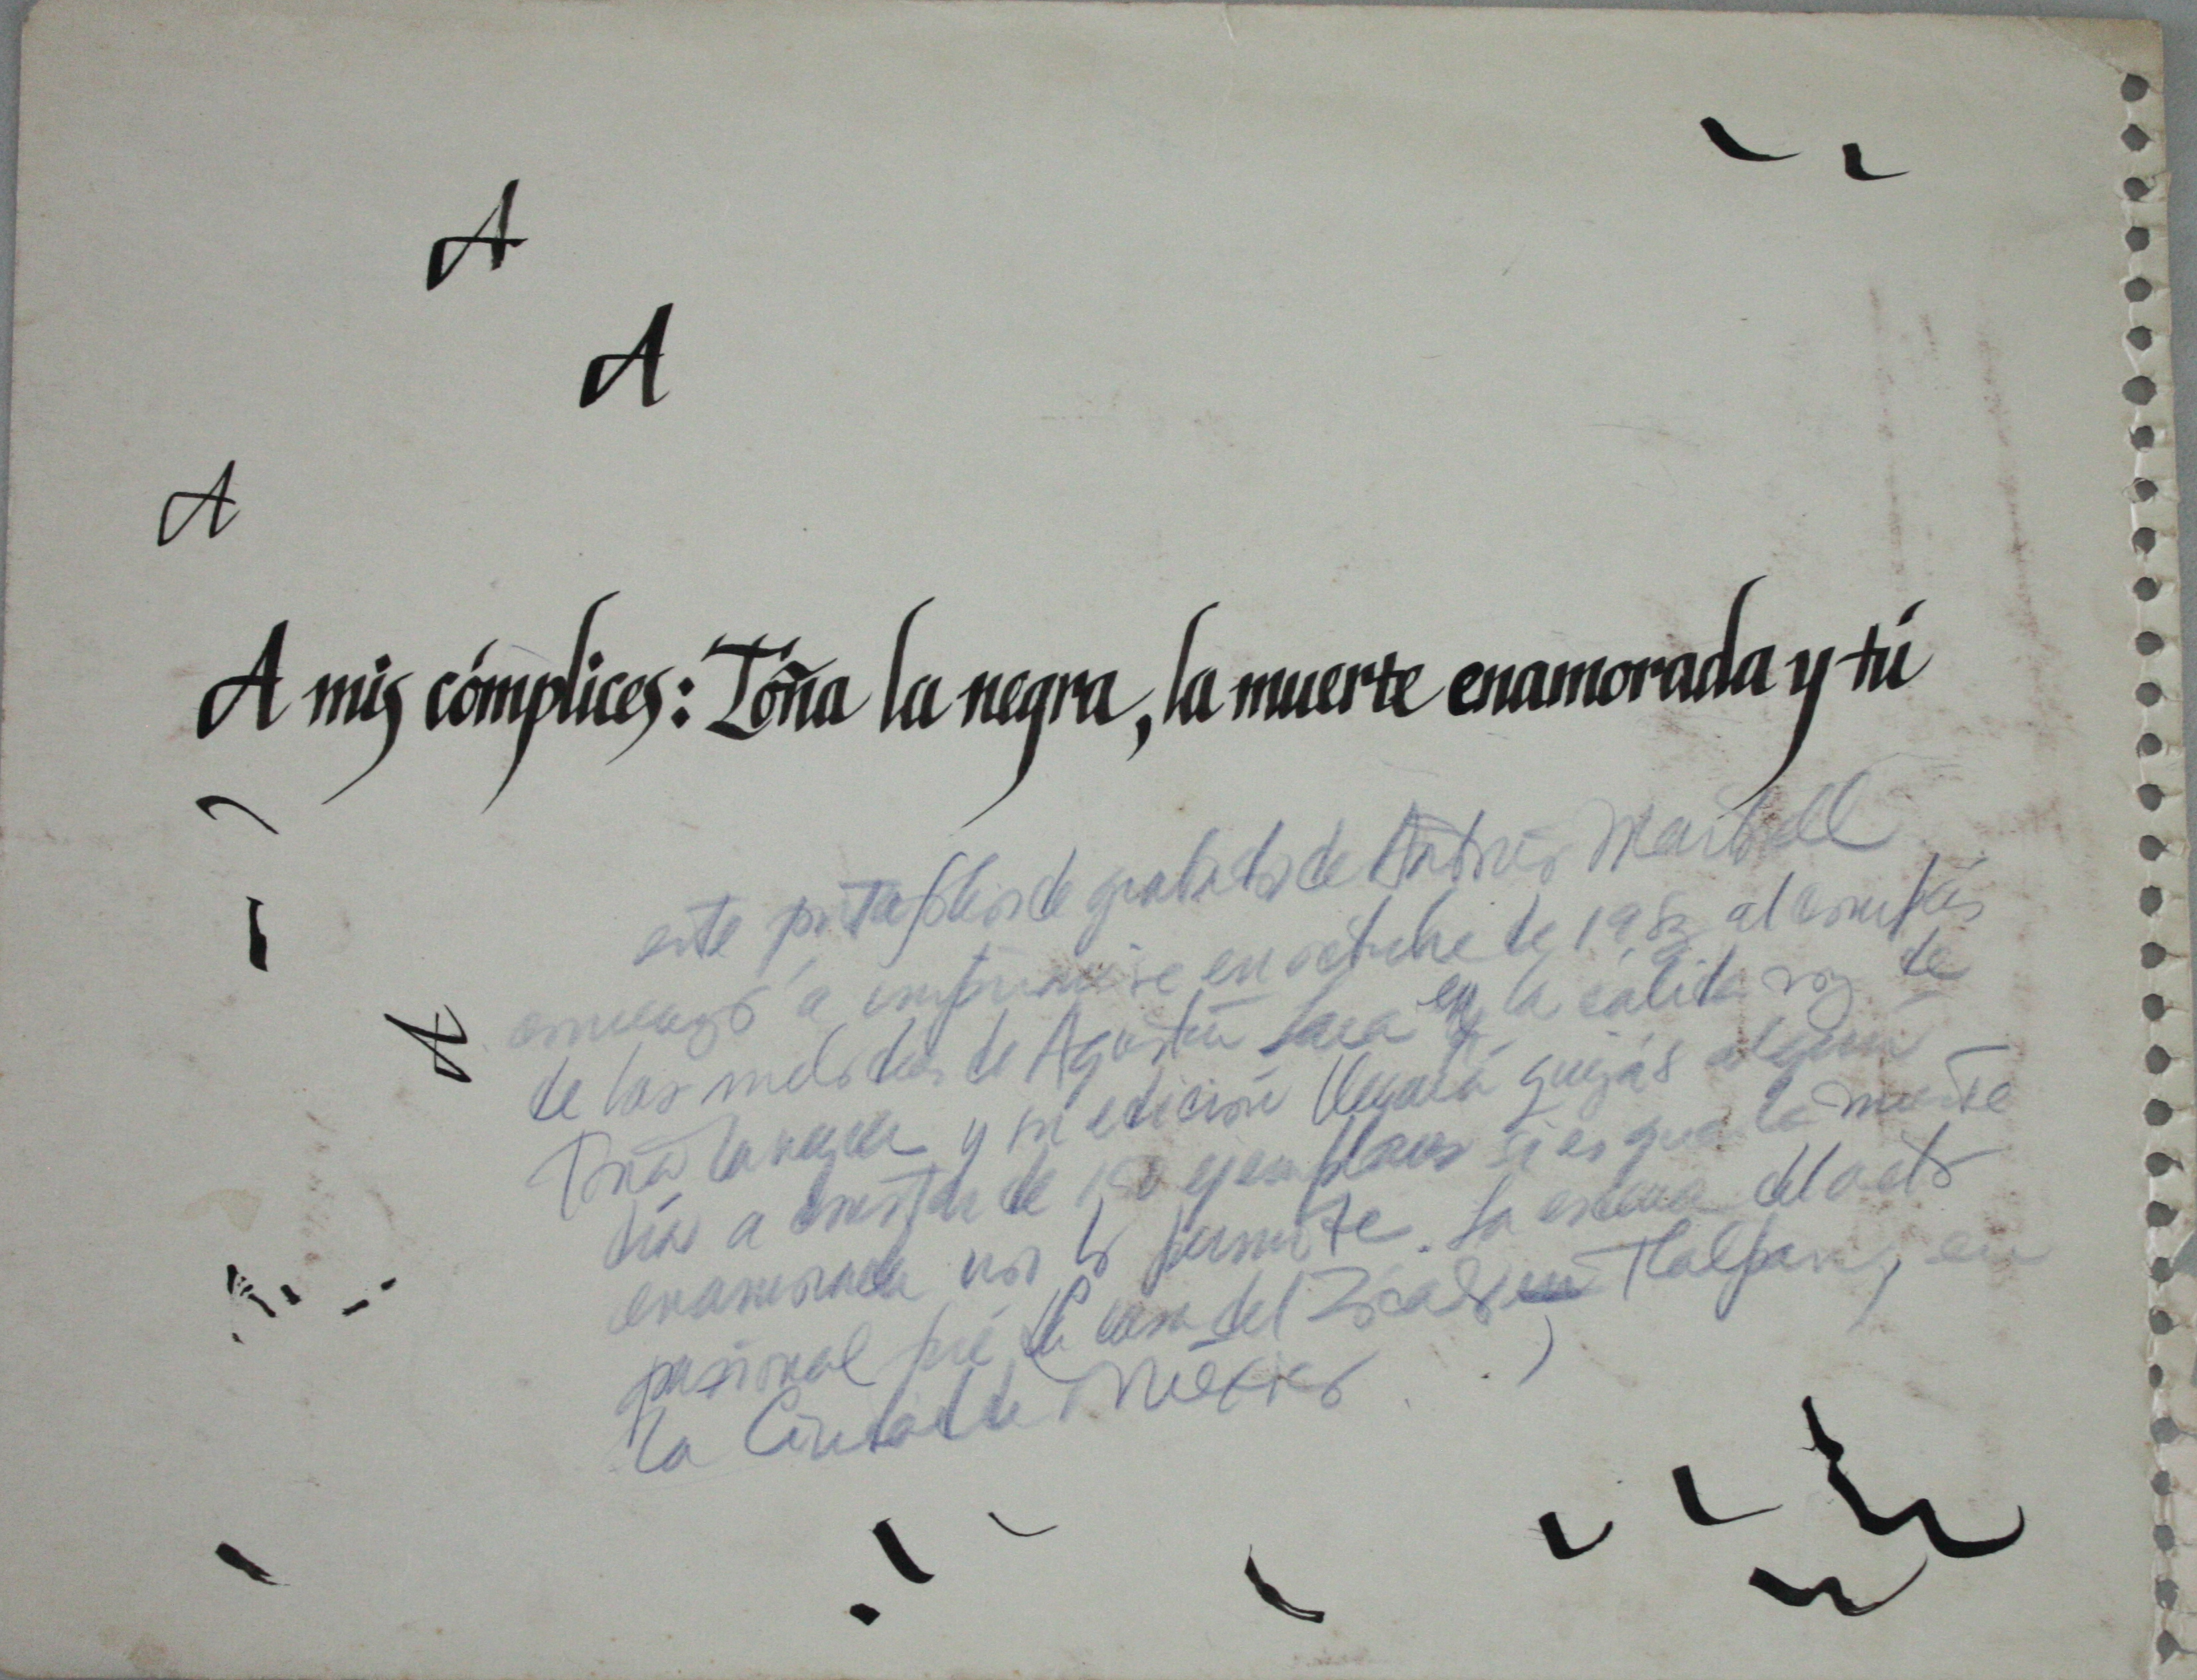 A
A
A
A mis cómplices: Toña la negra, la muerte enamorada y tú
este portafolios de grabados de Andrés
comenzó a imprimirse en octubre de 198 al compás
A
de las melodías de Agustín Lara en la cálida voz de
Toña la negra y su edición llegará quizás algún
día a constar de ejemplares si es que la muerte
enamorada nos lo permite. La escena del acto
pasional fué la casa del Zócalo en Tlalpan, en
la Ciudad de México